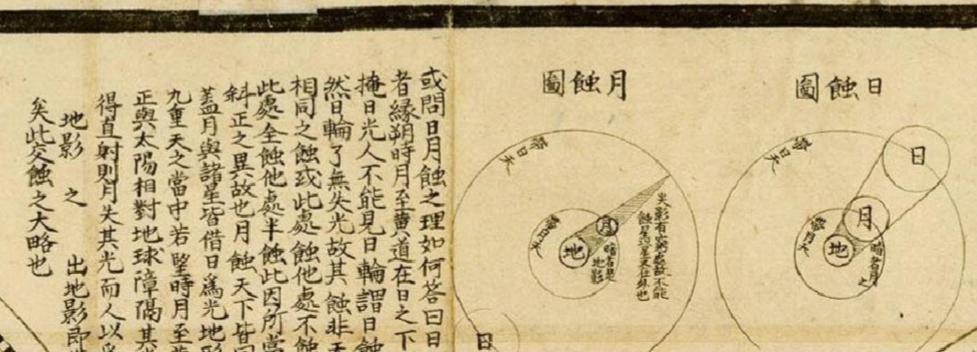 日蝕圖
輪日天
日
月
地
輪月天
暗者月之
月蝕圖
輪日天
月
地
輪月天
暗者是地影
日
或問日月蝕之理如何答曰日
者緣朔時月至黄道在日之下
掩日光人不能見日輪謂日蝕
然日輪了無失光故其蝕非
相同之蝕或此處蝕他處不蝕
此處全蝕他處半蝕此因所當
斜正之異故也月蝕天下皆同
蓋月與諸星皆借日爲光地
九重天之當中若望時月至
正與太陽相對地球障隔其
得直射則月失其光而人以
地影之 出地影即
矣此交蝕之大略也